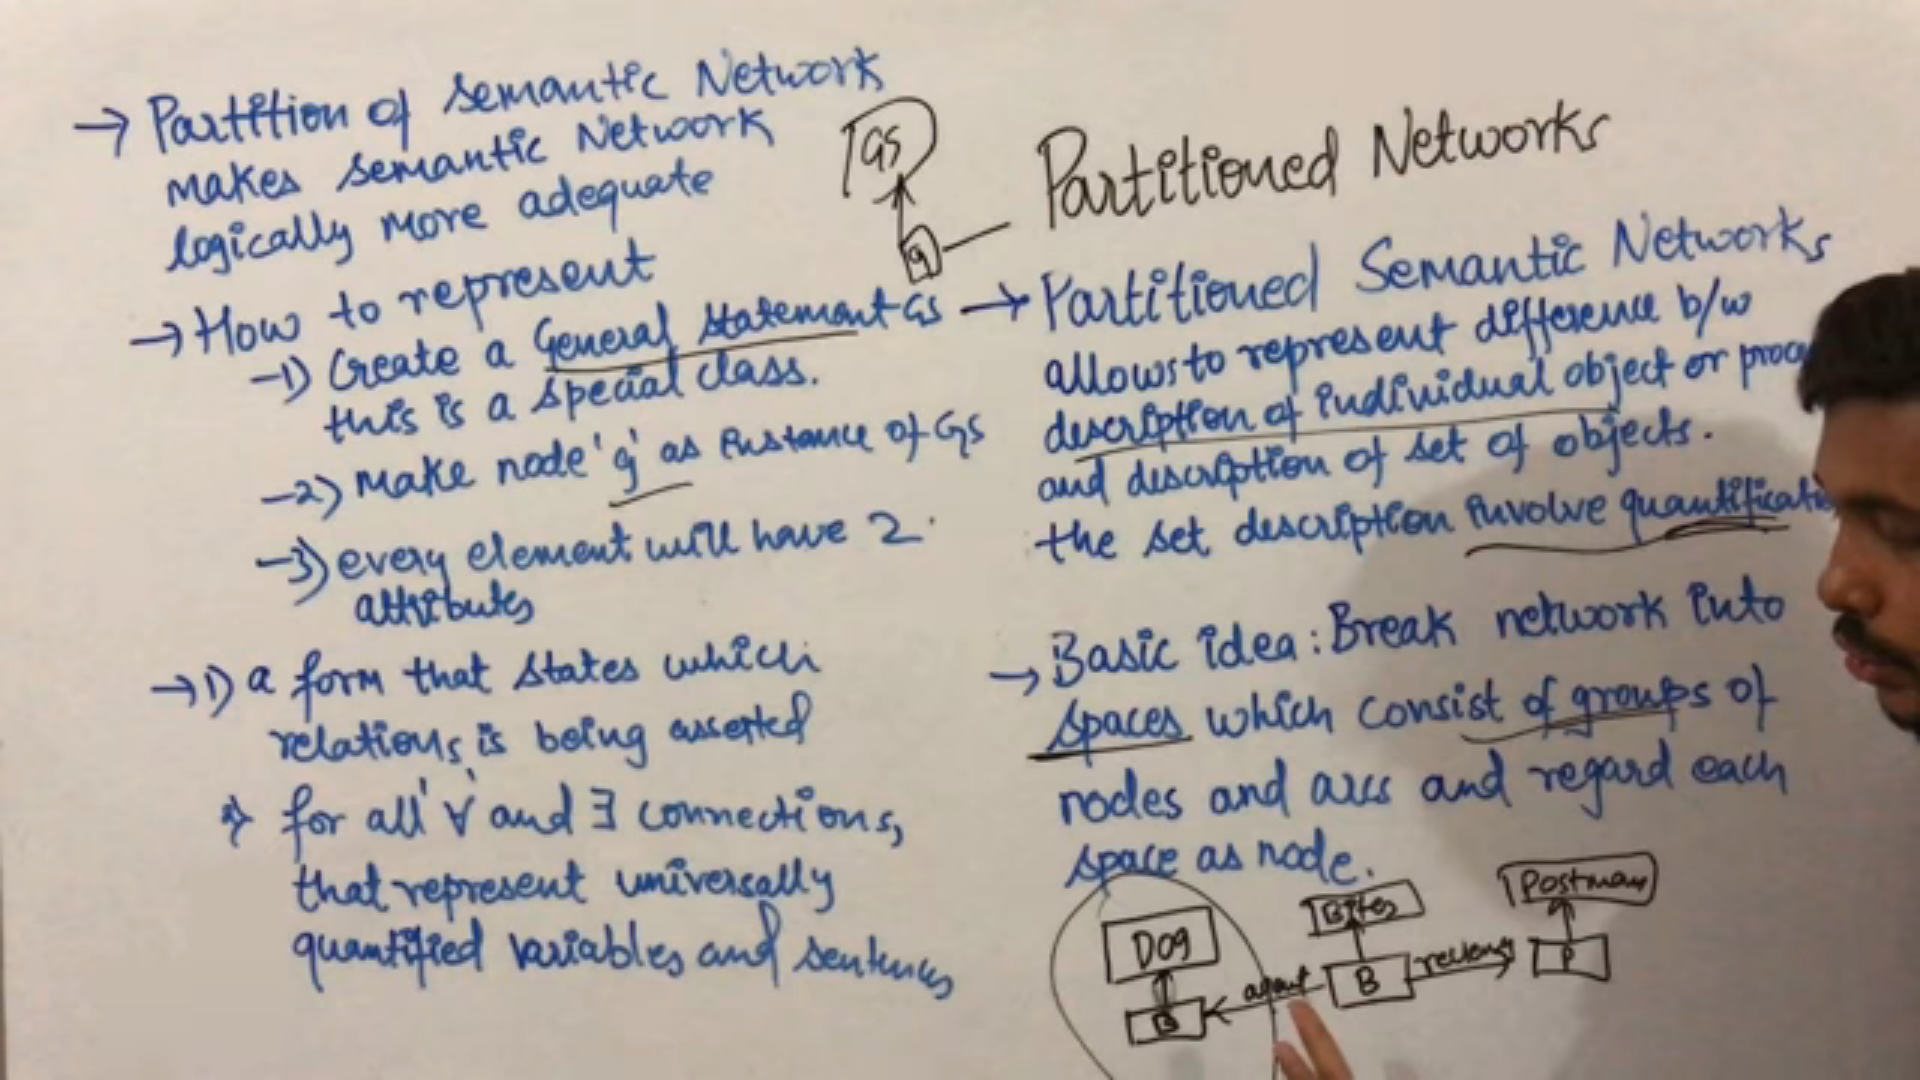 → Partition of semantic Network
makes semantic Network
logically more adequate
→ How to represent
-1) Create a General Statement GS
this is a special class.
-2) Make node 'g' as instance of GS
-3) every element will have 2
attributes
→ 1) a form that states which
relations is being asserted
for all '∀' and ∃ connections,
that represent universally
quantified variables and sentences
GS
g
Partitioned Networks
→ Partitioned Semantic Networks
allows to represent difference b/w
description of individual object or proce
and description of set of objects.
the set description involve quantificati
→ Basic idea: Break network into
spaces which consist of groups of
nodes and arcs and regard each
space as node.
Dog
Bites
Postman
agent
B
P